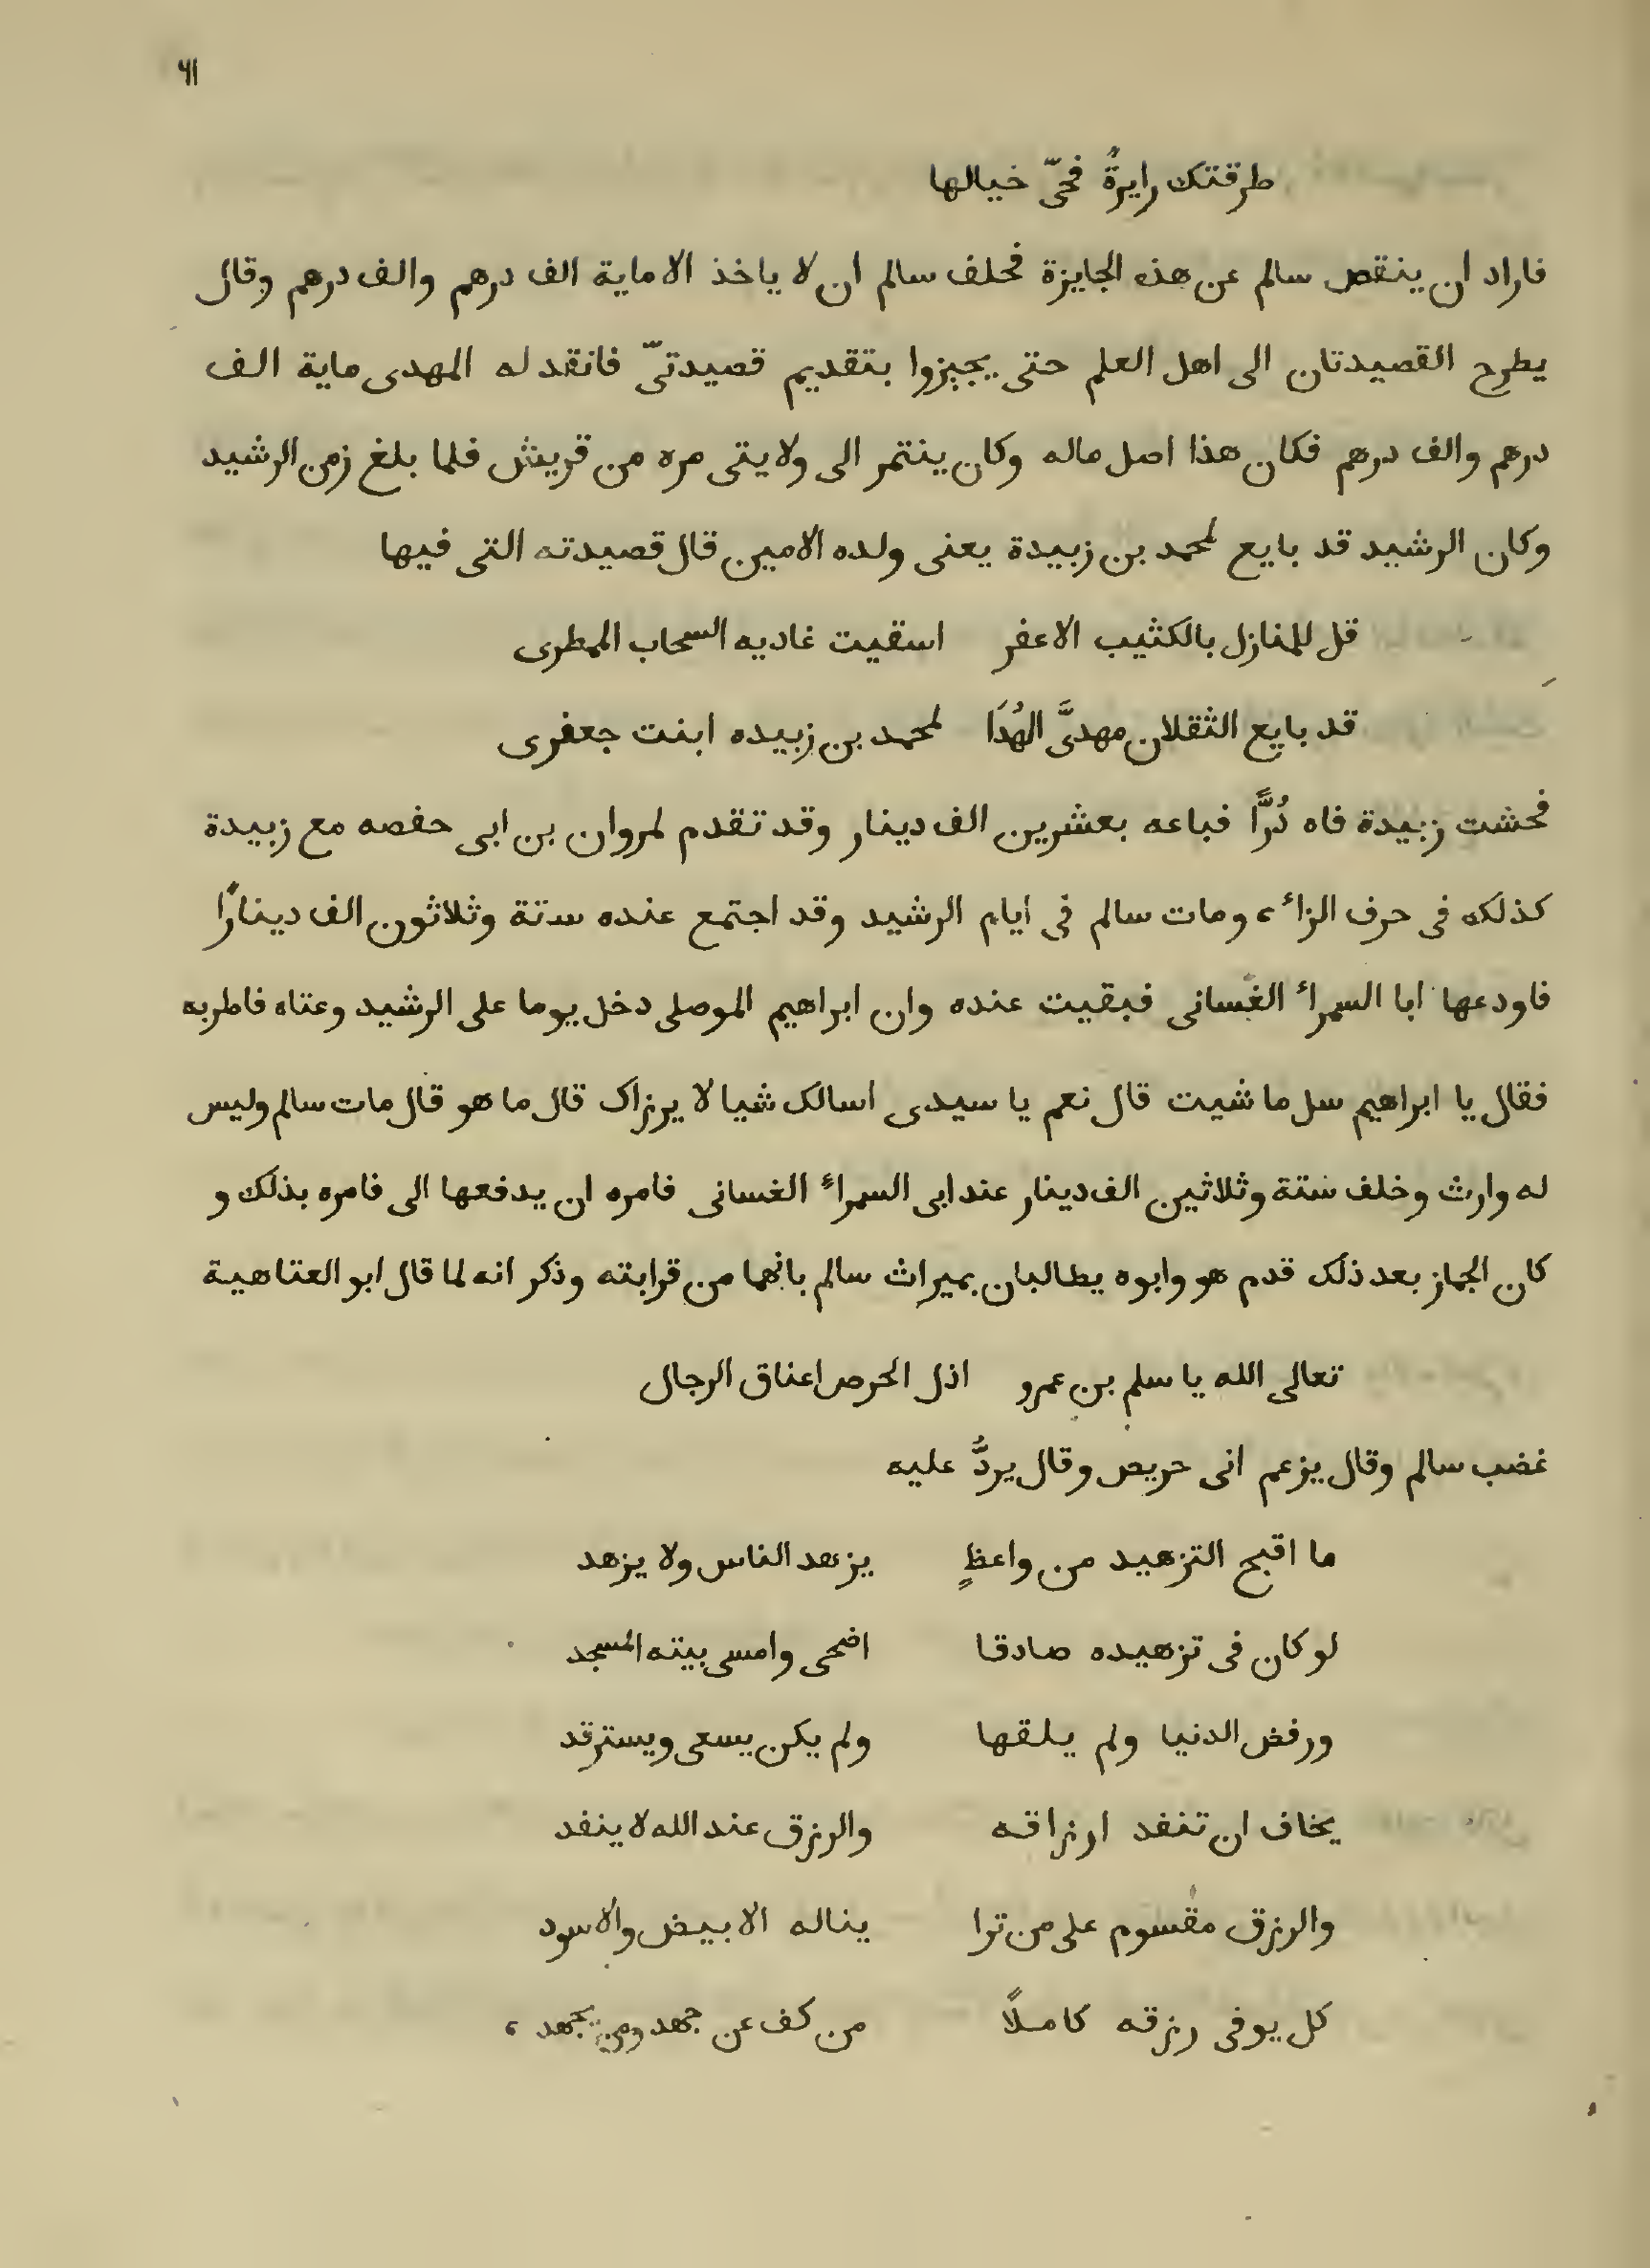 ٦١
طرقتك رايرةً فحىّ خيالها
فاراد ان ينقص سالم عن هذه الجايزة فحلف سالم ان لا ياخذ الا ماية الف درهم والف درهم وقال
يطرح القصيدتان الى اهل العلم حتى يجيزوا بتقديم قصيدتىّ فانقد له المهدى ماية الف
درهم والف درهم فكان هذا اصل ماله وكان ينتمر الى ولايتى مره من قريش فلما بلغ زمن الرشيد
وكان الرشيد قد بايع لمحمد بن زبيدة يعنى ولده الامين قال قصيدته التى فيها
قل للمنازل بالكثيب الاعفر اسقيت غاديه السحاب الممطرى
قد بايع الثقلان مهدىَّ الهُدَا لمحمد بن زبيده ابنت جعفرى
فحشت زبيدة فاه دُرًّا فباعه بعشرين الف دينار وقد تقدم لمروان بن ابى حفصه مع زبيدة
كذلكه فى حرف الزاء ومات سالم فى ايام الرشيد وقد اجتمع عنده ستة وثلاثون الف دينارًا
فاودعها ابا السمراء الغسانى فبقيت عنده وان ابراهيم الموصلى دخل يوما على الرشيد وعتاه فاطربه
فقال يا ابراهيم سل ما شيت قال نعم يا سيدى اسالك شيا لا يرزاك قال ما هو قال مات سالم وليس
له وارث وخلف ستة وثلاثين الف دينار عند ابى السمراء الغسانى فامره ان يدفعها الى فامره بذلك و
كان الجماز بعد ذلك قدم هو وابوه يطالبان بميراث سالم بانهما من قرابته وذكر انه لما قال ابو العتاهية
تعالى الله يا سلم بن عمرو اذل الحرص اعناق الرجال
غضب سالم وقال يزعم انى حريص وقال يردُّ عليه
ما اقبح التزهيد من واعظٍ يزهد الناس ولا يزهد
لو كان فى تزهيده صادقا اضحى وامسى بيته المسجد
ورفض الدنيا ولم يلقها ولم يكن يسعى ويسترقد
يخاف ان تنفد ارزاقه والرزق عند الله لا ينفد
والرزق مقسوم على من ترا يناله الابيض والاسود
كل يوفى رزقه كاملًا من كف عن جهد ومن يجهد